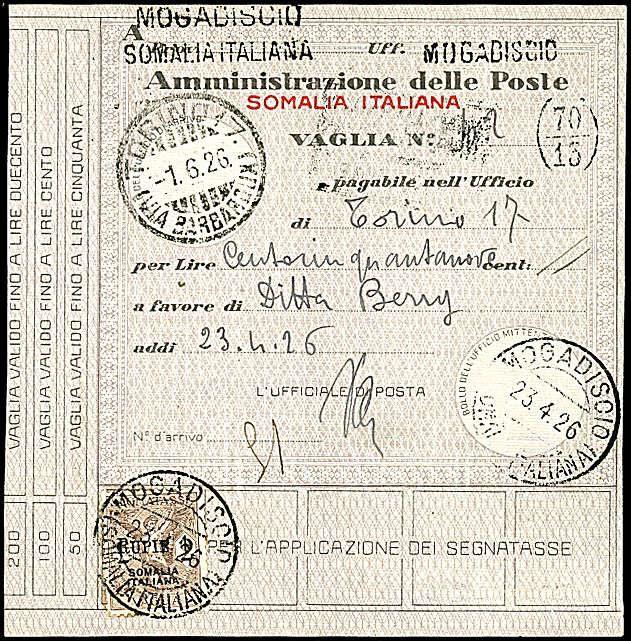 MOGADISCIO
A
SOMALIA ITALIANA Uff. MOGADISCIO
Amministrazione delle Poste
SOMALIA ITALIANA
VAGLIA N°
70
13
pagabile nell'Ufficio
di Torino 17
per Lire Centocinquantanove cent: //
a favore di Ditta Berry
addì 23.4.26
L'UFFICIALE DI POSTA
N° d'arrivo
TORINO 17
-1.6.26.
VIA BARBAROUX
BOLLO DELL'UFFICIO MITTE
MOGADISCIO
23.4.26
ITALIANA
VAGLIA VALIDO FINO A LIRE DUECENTO
VAGLIA VALIDO FINO A LIRE CENTO
VAGLIA VALIDO FINO A LIRE CINQUANTA
200
100
50
PER L'APPLICAZIONE DEI SEGNATASSE
MOGADISCIO
SOMALIA ITALIANA
RUPIE 1
SOMALIA
ITALIANA